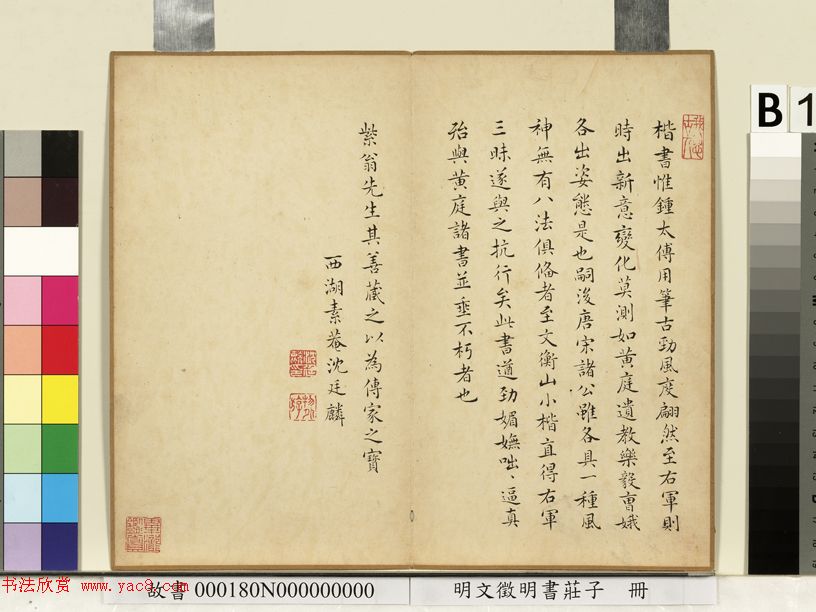 楷書惟鍾太傅用筆古勁風度翩然至右軍則
時出新意變化莫測如黃庭遺教樂毅曹娥
各出姿態是也嗣後唐宋諸公雖各具一種風
神無有八法俱備者至文衡山小楷直得右軍
三昧遂與之抗行矣此書遒勁媚嫵咄、逼真
殆與黃庭諸書並垂不朽者也
紫翁先生其善藏之以為傳家之寶
西湖素菴沈廷麟
B 1
书法欣赏 www.yac8.com
故書 000180N000000000
明文徵明書莊子 冊